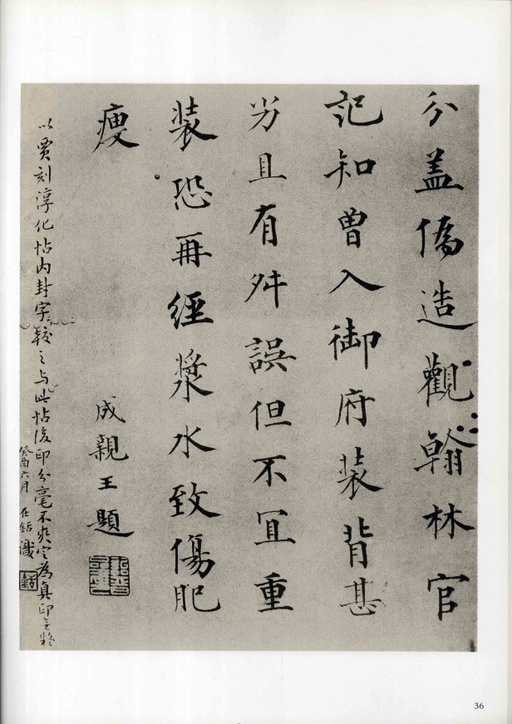 分盖偽造觀翰林官
記知曽入御府装背甚
劣且有舛誤但不冝重
装恐再經漿水致傷肥
瘦
成親王題
以賈刻淳化帖内封字較之与此帖後印分毫不爽定為真印無疑
癸酉六月
識
36